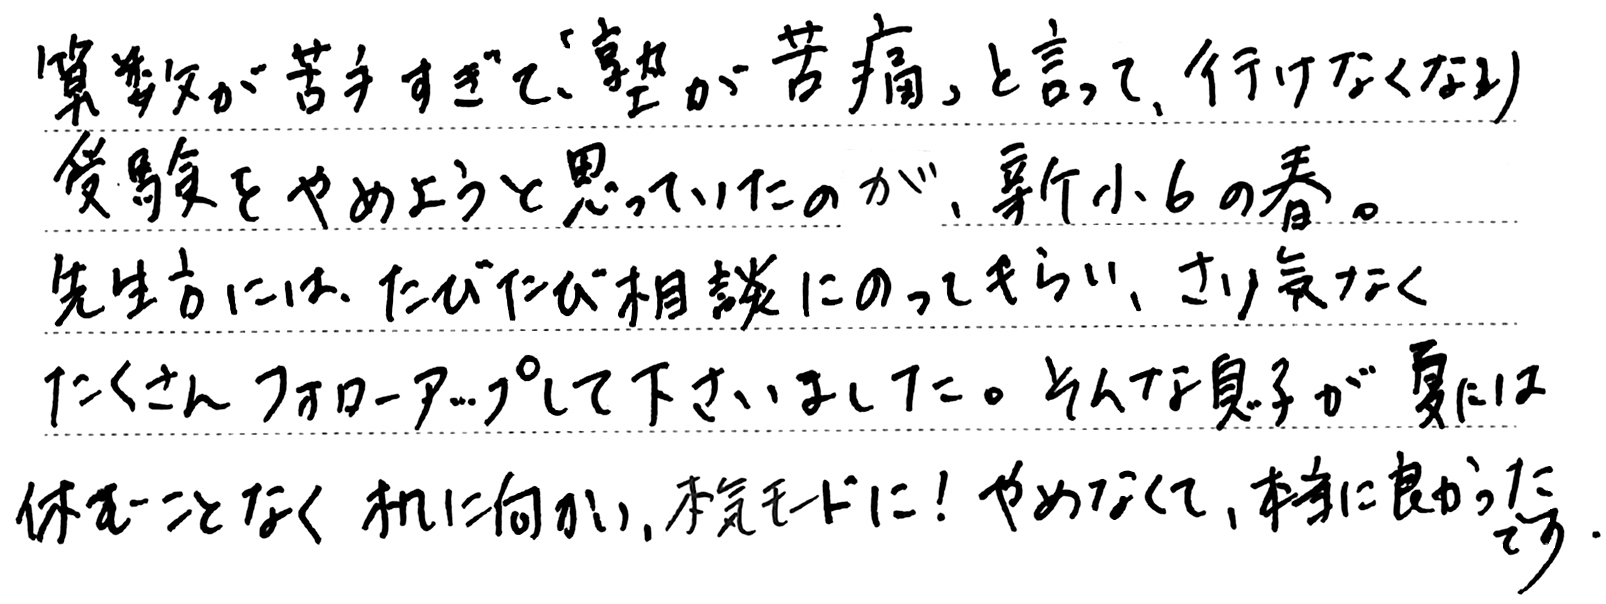 算数が苦手すぎて、「塾が苦痛」と言って、行けなくなり
受験をやめようと思っていたのが、新小6の春。
先生方には、たびたび相談にのってもらい、さり気なく
たくさんフォローアップして下さいました。そんな息子が夏には
休むことなく机に向かい、本気モードに!やめなくて、本当に良かった
です.